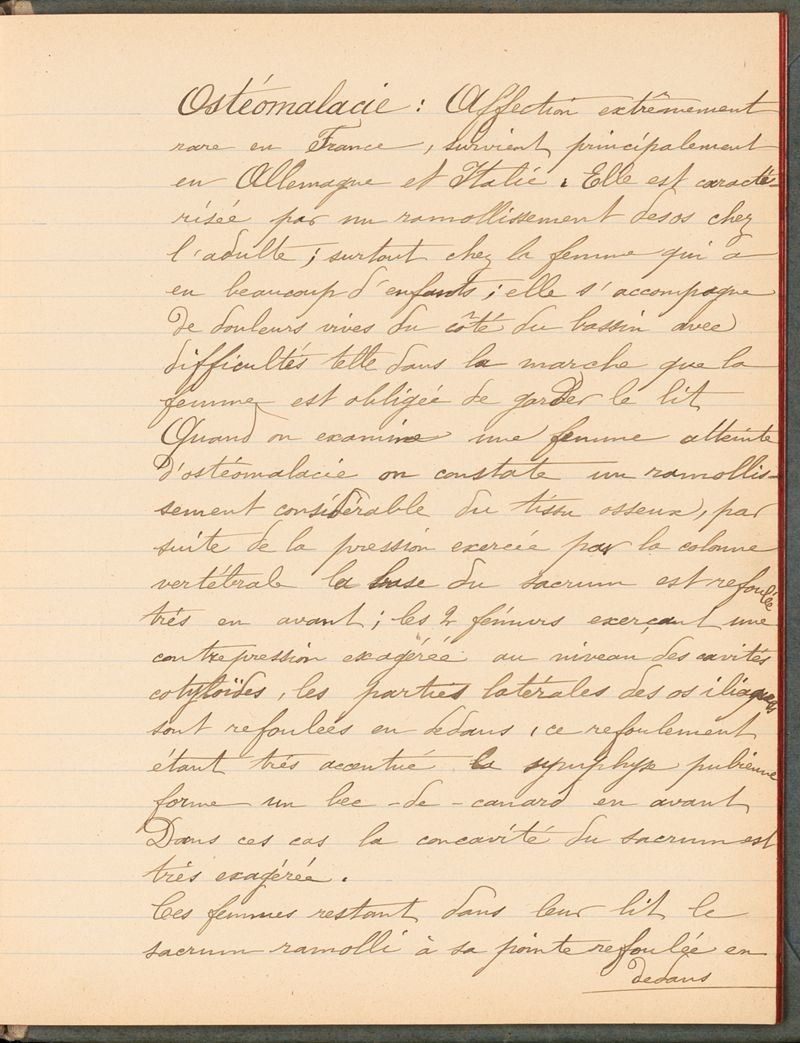 Ostéomalacie : Affection extrêmement
rare en France, survient principalement
en Allemagne et Italie. Elle est caracté-
risée par un ramollissement des os chez
l'adulte ; surtout chez la femme qui a
eu beaucoup d'enfants ; elle s'accompagne
de douleurs vives du côté du bassin avec
difficultés telle dans la marche que la
femme est obligée de garder le lit
Quand on examine une femme atteinte
d'ostéomalacie on constate un ramollis-
sement considérable du tissu osseux, par
suite de la pression exercée par la colonne
vertébrale la base du sacrum est refoulée
très en avant ; les 2 fémurs exerçant une
contrepression exagérée au niveau des cavités
cotyloïdes, les parties latérales des os iliaques
sont refoulées en dedans, ce refoulement
étant très accentué la symphyse pubienne
forme un bec-de-canard en avant
Dans ces cas la concavité du sacrum est
très exagérée.
Ces femmes restant dans leur lit le
sacrum ramolli à sa pointe refoulée en
dedans